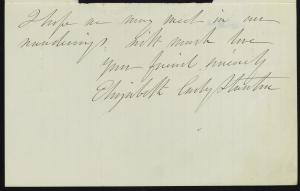 I hope we may meet in our
wanderings. With much love
your friend sincerely
Elizabeth Cady Stanton